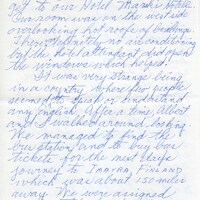 get to our Hotel
Our room was on the west side
overlooking hot roofs of buildings
There definitely no air conditioning
by the
the windows which helped.
It was very strange being
in a country where few people
seemed to speak or understand
any English. After a time, Albert
and I walked around looking
We managed to find the
bus station and to buy bus
tickets for the next days
journey to Inatra, Finland
which was about 150 miles
away. We were assigned